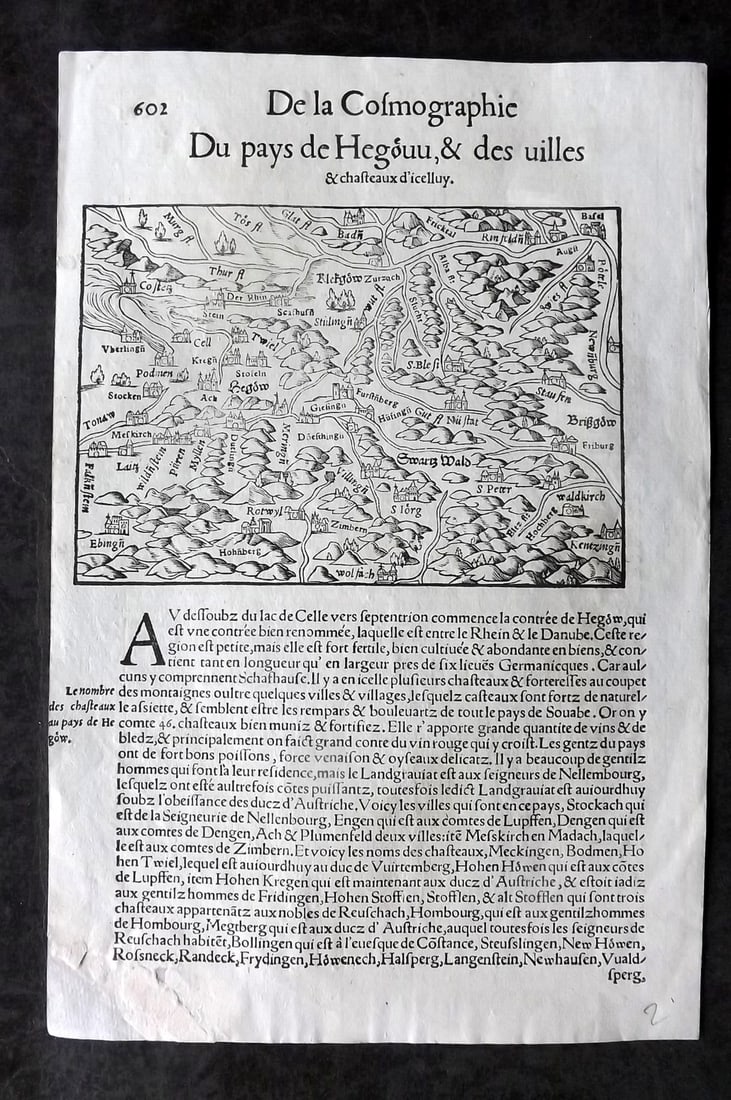 602
De la Coſmographie
Du pays de Hegőuu, & des uilles
& chaſteaux d'icelluy.
Murg fl
Tős fl
Glat fl
Badñ
Fricktal
Rinfeldñ
Basel
Augſt
Coſtẽtz
Thur fl
Der Rhin
Stein
Schafhuſñ
Klekgőw
Zurzach
Stilingñ
Vberlingñ
Cell
Twiel
Kregñ
Stofeln
Podmen
Stocken
Ach
Hegőw
S. Bleſi
Newburg
Stauſen
Furſtñberg
Giſingñ
Hüfingñ
Gut fl
Nüſtat
Brißgőw
Friburg
Tonaw
Meſkirch
Laitz
Wildñſtein
Falkñſtein
Dutlingñ
Meringñ
Dőeſchingñ
Vilingñ
Swartz Wald
S. Peter
Waldkirch
Hochberg
Kentzingñ
Ebingñ
Rotwyl
Hohñberg
Zimbern
S Iőrg
Wolfach
AV deſſoubz du lac de Celle vers ſeptentrion commence la contrée de Hegőw, qui
eſt vne contrée bien renommée, laquelle eſt entre le Rhein & le Danube. Ceſte re-
gion eſt petite, mais elle eſt fort fertile, bien cultiuée & abondante en biens, & con-
tient tant en longueur qu'en largeur pres de ſix lieuës Germanicques. Car aul-
cuns y comprennent Schafhauſe. Il y a en icelle pluſieurs chaſteaux & fortereſſes au coupet
Le nombre
des chaſteaux
au pays de He
gőw.
des montaignes oultre quelques villes & villages, leſquelz caſteaux ſont fortz de naturel-
le aſsiette, & ſemblent eſtre les rempars & bouleuartz de tout le pays de Souabe. Or on y
comte 46. chaſteaux bien muniz & fortifiez. Elle r'apporte grande quantite de vins & de
bledz, & principalement on faict grand conte du vin rouge qui y croiſt. Les gentz du pays
ont de fort bons poiſſons, force venaiſon & oyſeaux delicatz. Il y a beaucoup de gentilz
hommes qui font là leur reſidence, mais le Landgrauiat eſt aux ſeigneurs de Nellembourg,
leſquelz ont eſté aultrefois cõtes puiſſantz, toutesfois ledict Landgrauiat eſt auiourdhuy
ſoubz l'obeiſſance des ducz d'Auſtriche. Voicy les villes qui ſont en ce pays, Stockach qui
eſt de la Seigneurie de Nellenbourg, Engen qui eſt aux comtes de Lupffen, Dengen qui eſt
aux comtes de Dengen, Ach & Plumenfeld deux villes: itẽ Meſskirch en Madach, laquel-
le eſt aux comtes de Zimbern. Et voicy les noms des chaſteaux, Meckingen, Bodmen, Ho
hen Twiel, lequel eſt auiourdhuy au duc de Vuirtemberg, Hohen Hőwen qui eſt aux cõtes
de Lupffen, item Hohen Kregen qui eſt maintenant aux ducz d'Auſtriche, & eſtoit iadiz
aux gentilz hommes de Fridingen, Hohen Stofflen, Stofflen, & alt Stofflen qui ſont trois
chaſteaux appartenãtz aux nobles de Reuſchach, Hombourg, qui eſt aux gentilzhommes
de Hombourg, Megtberg qui eſt aux ducz d'Auſtriche, auquel toutesfois les ſeigneurs de
Reuſchach habitẽt, Bollingen qui eſt à l'eueſque de Cõſtance, Steuſslingen, New Hőwen,
Roſsneck, Randeck, Frydingen, Hőwenech, Halſperg, Langenſtein, Newhauſen, Vuald-
ſperg,
2